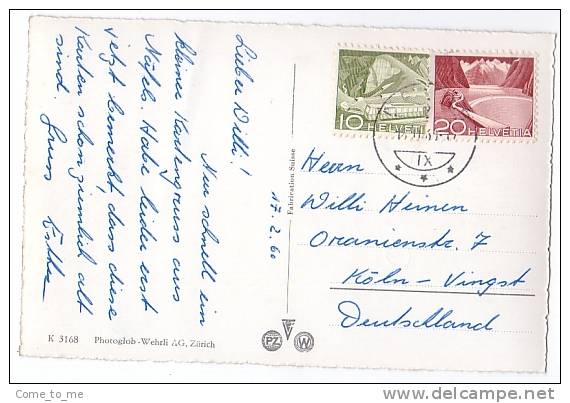 Lieber Willi!
17.2.60
Nur schnell ein
kleiner Kartengruss aus
Näfels. Habe leider erst
jetzt bemerkt, dass diese
Karten schon ziemlich alt
sind. Gruss Esther
K 3168 Photoglob-Wehrli AG, Zürich
Fabrication Suisse
PZ W
10 HELVETIA
20 HELVETIA
IX
Herrn
Willi Heinen
Oranienstr. 7
Köln-Vingst
Deutschland
Come_to_me
delcampe.net